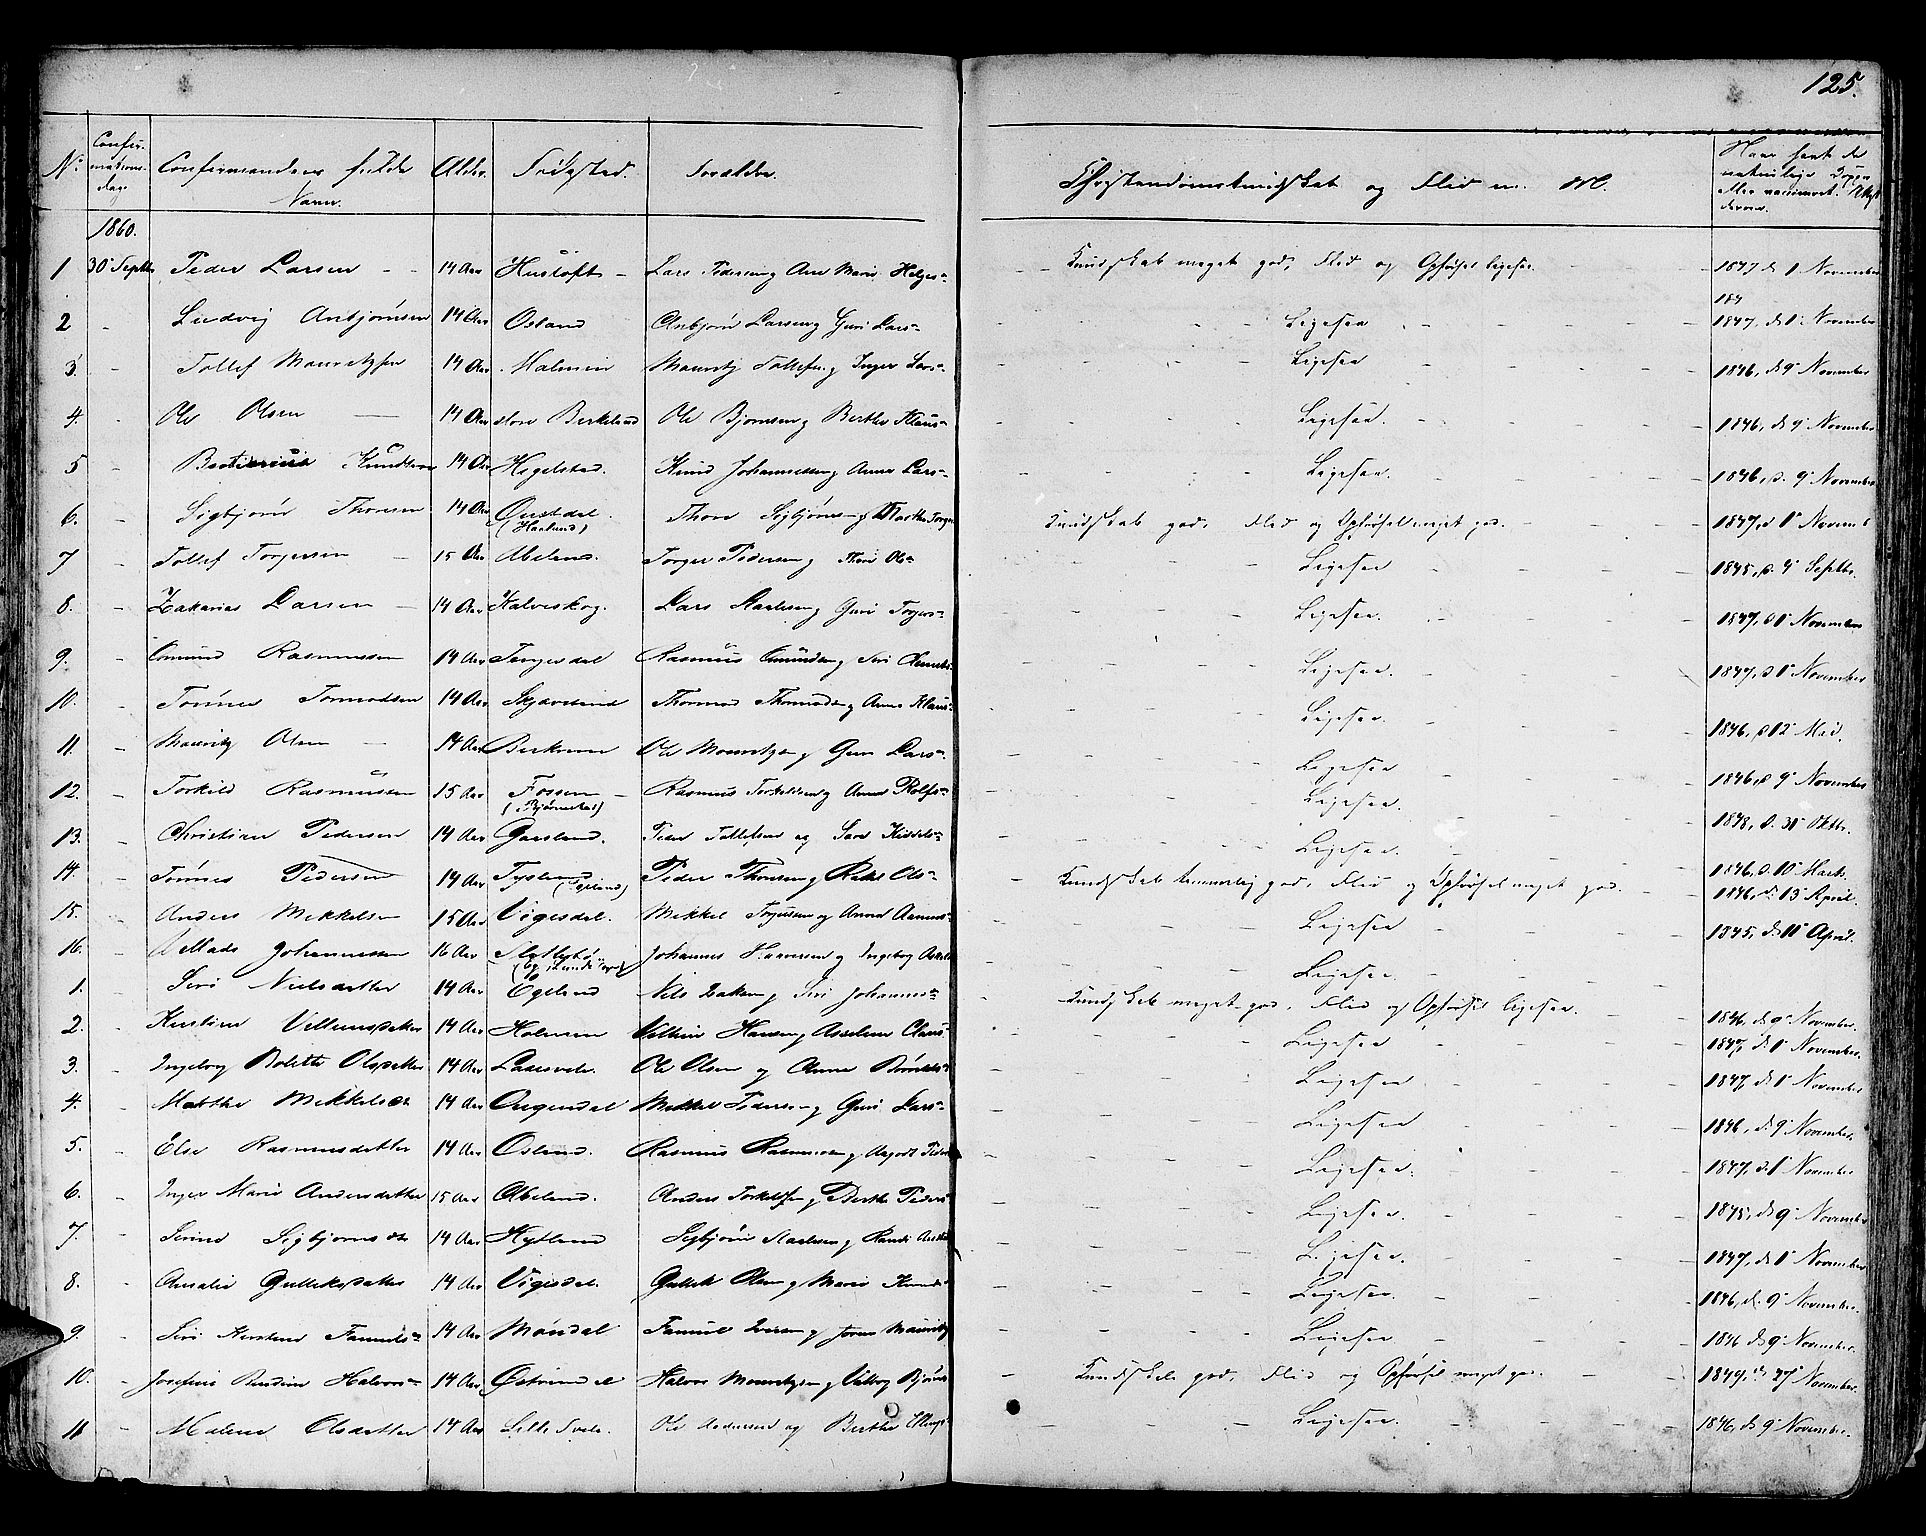 125.
No Confirmations dag Confirmandens fulde Navn. Alder. Fødested. Forældre. Christendomskundskab og Flid m. M. Naar havt de naturlige Kopper eller vaccineret. Attest derom.
1860.
1 30 Septbr Peder Larsen 14 Aar Husloft Lars Pedersen og Ane Marie Helges Kundskab meget god, Flid og Opførsel ligesaa. 1847 d 1 November
184
2 Ludvig Anbjørnsen 14 Aar Osland Anbjørn Larsen og Guri Lars Ligesaa 1847, d 1 November
3. Tollef Mauritzsen 14 Aar Malmin Mauritz Tollefsen og Inger Lars Ligesaa 1846, d 9 November
4. Ole Olsen 14 Aar store Berkeland Ole Bjørnsen og Berthe Klaus Ligesaa. 1846, d 9 November
5 Knudsen 14 Aar Hegelstad. Knud Johannessen og Anne Lars Ligesaa. 1846, d. 9 November
6. Sigbjørn Thoresen 14 Aar Ørsdal. Thore Sigbjørnsen og Marthe Torger Kundskab god, Flid og Opførsel meget god. 1847, d 1
(Haaland)
7 Tollef Torgersen 15 Aar Abeland. Torger Pedersen og Thori Ols Ligesaa 1845, d. 4 Septbr.
8. Zakarias Larsen 14 Aar Kalveskog. Lars og Guri Torgers Ligesaa. 1847, d 1 November
9. Omund Rasmussen 14 Aar Tengesdal Rasmus Omundsen og Siri Ligesaa. 1847, d 1 November
10. Tønnes Tormodsen 14 Aar Skjæveland Thormod Thormods og Anne Klaus Ligesaa. 1846, d 12 Mai.
11. Mauritz Olsen 14 Aar Birkrem Ole Mauritzsen og Guri Lars Ligesaa 1846, d 9 November
12. Torkild Rasmussen 15 Aar Fossen Rasmus Torkildsen og Anne Rolfs Ligesaa. 1848, d. 31 Oktbr.
(Bjørnestad)
13. Christian Pedersen 14 Aar Gaasland. Peder Tollefsen og Sara Ligesaa. 1846, d. 10 Marts.
14. Tønnes Pedersen 14 Aar Tysland Peder Thorsen og Rakel Ols Kundskab temmelig god, Flid og Opførsel meget god. 1846, d. 13 April.
15. Anders Mikkelsen 15 Aar Vigesdal. Mikkel Torjussen og Aamunds Ligesaa 1845, d. 11 April.
16. Villads Johannessen 16 Aar Slettebø Johannes og Ingeborg Ligesaa.
1. Siri Nielsdatter 14 Aar Egeland Nils Zakari og Siri Johannes Kundskab meget god, Flid og Opførsel ligesaa. 1846, d. 9 November.
2. Kirstine Villumsdatter 14 Aar Holmen Villum Hansen og Claus Ligesaa 1847, d. 1 November.
3. Ingeborg Bolette Olsdatter 14 Aar Ladesvele. Ole Olsen og Anne Ligesaa 1847, d 1 November
4. Marthe Mikkelsd 14 Aar Øvgendal Mikkel Pedersen og Guri Lars Ligesaa 1846, d. 9 November.
5. Else Rasmusdatter 14 Aar Osland. Rasmus Rasmussen og Peders Ligesaa. 1847, d. 1 November
6. Inger Marie Andersdatter 15 Aar Abeland. Anders Torkelsen og Berthe Peders Ligesaa. 1845, d 9 November
7. Serine Sigbjørnsdtr 14 Aar Hytland Sigbjørn og Randi Ligesaa. 1847, d 1 November
8. Amalie Gulleksdatter 14 Aar Vigesdal. Gullek Olsen og Marie Knuds Ligesaa. 1846, d. 9 November.
9. Siri Samuels 14 Aar Møndal Samuel Iversen og Mauritz Ligesaa 1846 d 9 November.
10. Josefine Halvors 14 Aar Østrumdal Halvor Mauritzsen og Valborg Bjørns Kundskab god, Flid og Opførsel meget god. 1849, d. 27 November.
11 Malene Olsdatter 14 Aar Lille Svele. Ole Pedersen og Berthe Ellings Ligesaa. 1846, d 9 November.